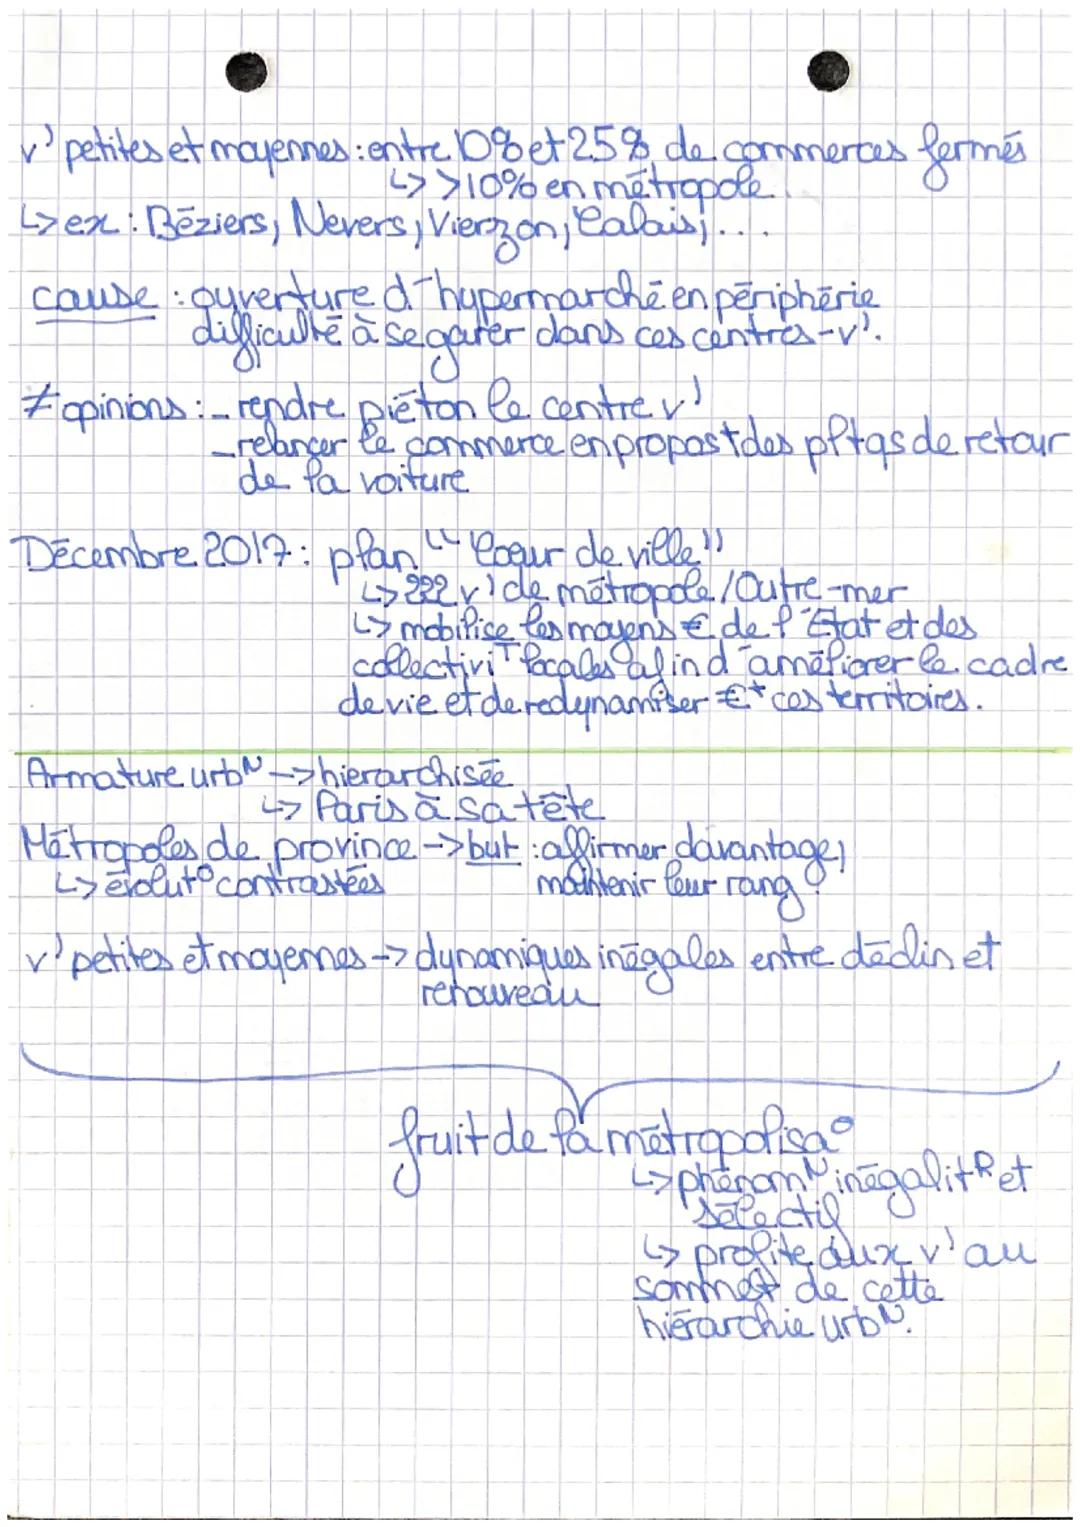 v' petites et moyennes : entre 10% et 25% de commerces fermés
↳ >10% en métropole.
↳ ex : Béziers, Nevers, Vierzon, Calais, ...
cause : ouverture d'hypermarché en périphérie
difficulté à se garer dans ces centres-v'.
≠ opinions : - rendre piéton le centre v'
- relancer le commerce en propost des pltqs de retour
de la voiture
Décembre 2017 : plan "Coeur de ville"
↳ 222 v' de métropole / Outre-mer
↳ mobilise les moyens € de l'État et des
collectiviT locales afin d'améliorer le cadre
de vie et de redynamiser €t ces territoires.
Armature urbN -> hierarchisée
↳ Paris à sa tête
Métropoles de province -> but : affirmer davantage,
↳ évolut° contrastées maintenir leur rang !
v' petites et moyennes -> dynamiques inégales entre déclin et
renouveau
fruit de la métropolisa°
↳ phénomN inégalitR et
sélectif
↳ profite aux v' au
sommet de cette
hiérarchie urbN.